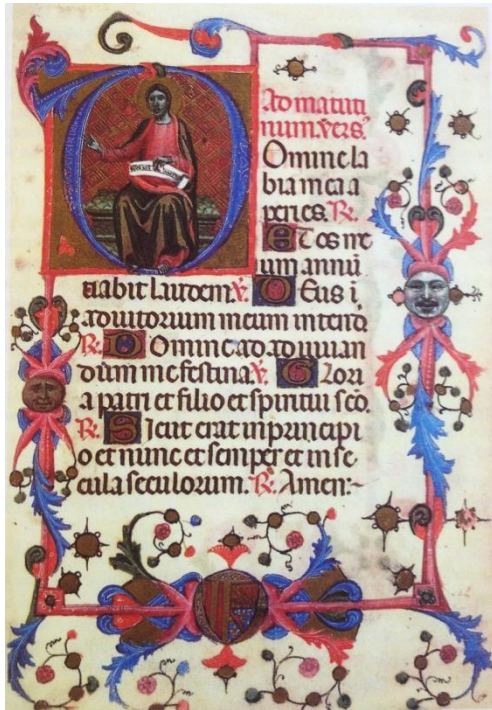 Ad matuti
num. vers̃
Omine la
bia mea a
peries. R.
Et os me
um annũ
tiabit laudem. v. Deus i
adiutorium meum intend
R. Domine ad adiuuan
dum me festina. v. Glori
a patri et filio et spiritui sc̃o.
R. Sicut erat in principi
o et nunc et semper et in se
cula seculorum. R. Amen:-